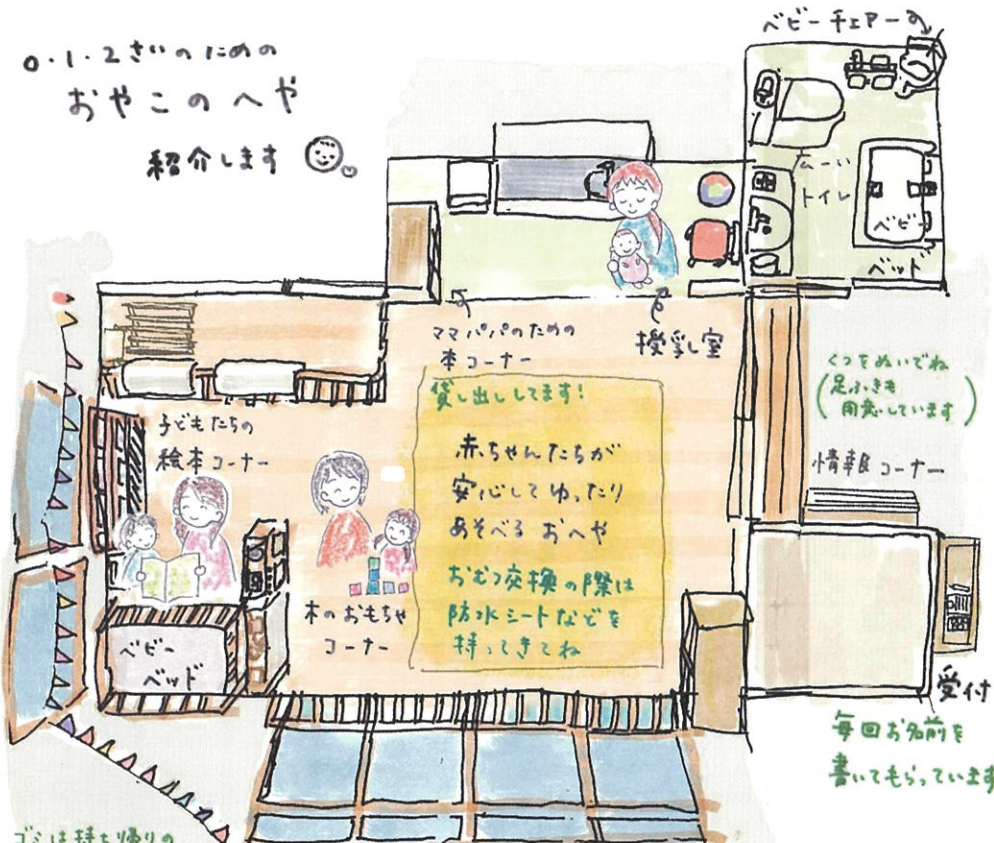 0・1・2さいのための
おやこのへや
紹介します
ベビーチェアー
広ーい
トイレ
ベビー
ベッド
ママパパのための
本コーナー
授乳室
くつをぬいでね
(足ふきも
用意しています)
情報コーナー
子どもたちの
絵本コーナー
貸し出ししてます!
赤ちゃんたちが
安心してゆったり
あそべるおへや
おむつ交換の際は
防水シートなどを
持ってきてね
木のおもちゃ
コーナー
ベビー
ベッド
受付
毎回お名前を
書いてもらっています
ゴミは持ち帰りの